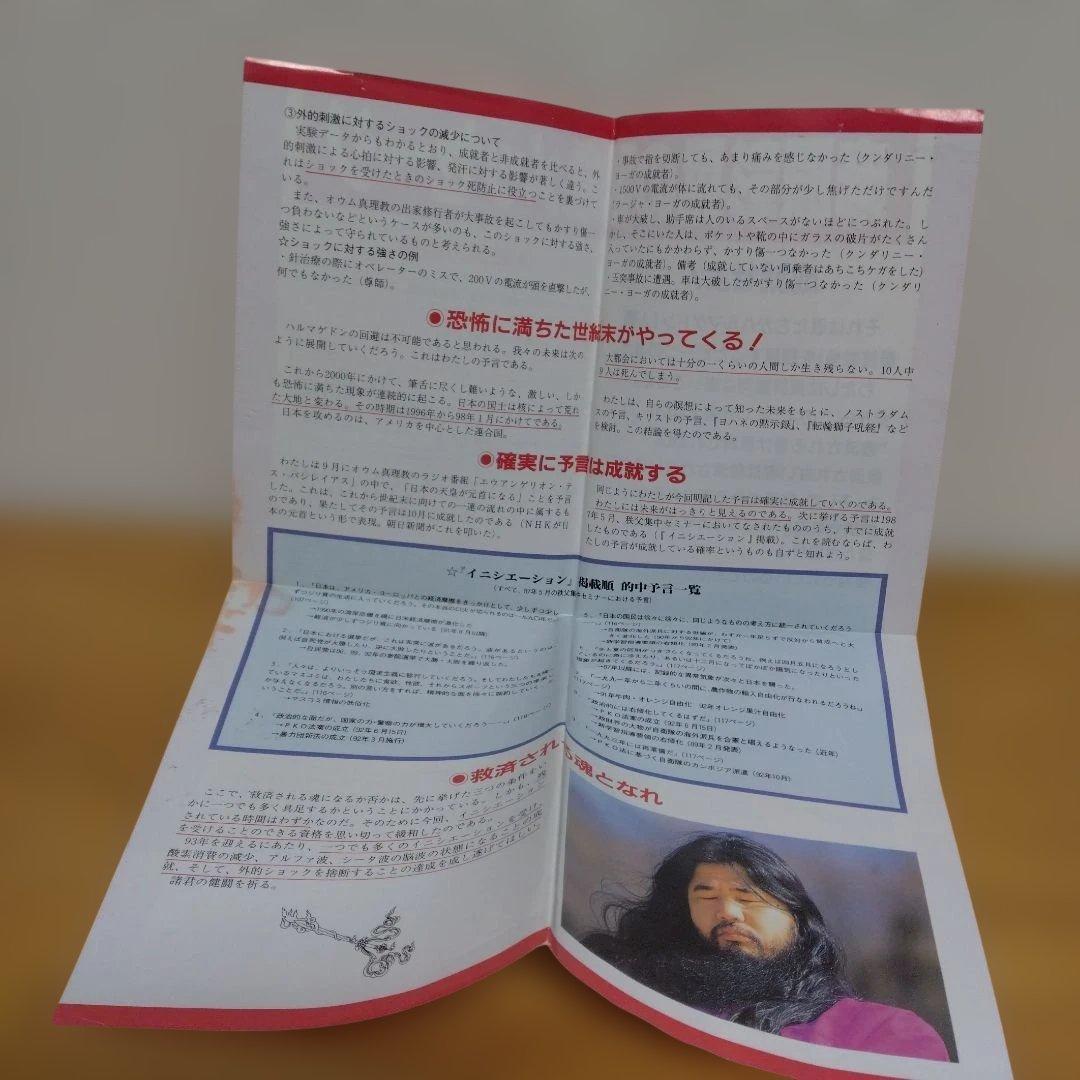 ③外的刺激に対するショックの減少について
実験データからもわかるとおり、成就者と非成就者を比べると、外
的刺激による心拍に対する影響、発汗に対する影響が著しく違う。こ
れはショックを受けたときのショック死防止に役立つことを裏づけて
いる。
また、オウム真理教の出家修行者が大事故を起こしてもかすり傷一
つ負わないなどというケースが多いのも、このショックに対する強さ、
強さによって守られているものと考えられる。
☆ショックに対する強さの例
・針治療の際にオペレーターのミスで、200Vの電流が頭を直撃したが、
何でもなかった（尊師）。
・事故で指を切断しても、あまり痛みを感じなかった（クンダリニー・
ヨーガの成就者）。
・1500Vの電流が体に流れても、その部分が少し焦げただけですんだ
（ラージャ・ヨーガの成就者）。
・車が大破し、助手席は人のいるスペースがないほどにつぶれた。し
かし、そこにいた人は、ポケットや靴の中にガラスの破片がたくさん
入っていたにもかかわらず、かすり傷一つなかった（クンダリニー・
ヨーガの成就者）。備考（成就していない同乗者はあちこちケガをした）
・玉突事故に遭遇。車は大破したがかすり傷一つなかった（クンダリ
ニー・ヨーガの成就者）。
●恐怖に満ちた世紀末がやってくる！
ハルマゲドンの回避は不可能であると思われる。我々の未来は次の
ように展開していくだろう。これはわたしの予言である。
これから2000年にかけて、筆舌に尽くし難いような、激しい、しか
も恐怖に満ちた現象が連続的に起こる。日本の国土は核によって荒れ
た大地と変わる。その時期は1996年から98年1月にかけてである。
日本を攻めるのは、アメリカを中心とした連合国。
大都会においては十分の一くらいの人間しか生き残らない。10人中
9人は死んでしまう。
わたしは、自らの瞑想によって知った未来をもとに、ノストラダム
スの予言、キリストの予言、『ヨハネの黙示録』、『転輪獅子吼経』など
を検討。この結論を得たのである。
●確実に予言は成就する
わたしは9月にオウム真理教のラジオ番組「エウアンゲリオン・テ
ス・バシレイアス」の中で、「日本の天皇が元首になる」ことを予言
した。これは、これから世紀末に向けての一連の流れの中に属するも
のであり、果たしてその予言は10月に成就したのである（NHKが日
本の元首という形で表現。朝日新聞がこれを叩いた）。
同じようにわたしが今回明記した予言は確実に成就していくのである。
わたしには未来がはっきりと見えるのである。次に挙げる予言は198
7年5月、秩父集中セミナーにおいてなされたもののうち、すでに成就
したものである（『イニシエーション』掲載）。これを読むならば、わ
たしの予言が成就している確率というものも自ずと知れよう。
☆『イニシエーション』掲載順 的中予言一覧
（すべて、87年5月の秩父集中セミナーにおける予言）
1、「日本は、アメリカ・ヨーロッパとの経済摩擦をきっかけとして、少しずつ少し
→経済が少しずつ質に向かっている（91年以降）
2、「日本における選挙だが、これは非常に波があるだろう。波があるというのは、
例えば自民党が大勝したり、逆に大敗したりということだ。」（116ページ）
→自民党は86、89、92年の参院選挙で大勝・大敗を繰り返した。
→マスコミ情報の低俗化
4、「政治的な面だが、国家の力・警察の力が増大していくだろう……」（116ページ）
→PKO法案の成立（92年6月15日）
→暴力団新法の成立（92年3月施行）
5、「日本の国民は徐々に徐々に、同じようなものの考え方に統一されていくだろう
→87年以降には、記録的な異常気象が次々と日本を襲った。
「一九九一年から二年くらいの間に、農作物の輸入自由化が行なわれるだろうね」
→91年牛肉・オレンジ自由化 92年オレンジ果汁自由化
「政治的には右傾化してくるはずだ」（117ページ）
→PKO法案の成立（92年6月15日）
→政財界の大物が自衛隊の海外派兵を合憲と唱えるようなった（近年）
→新学習指導要領の右傾化（89年2月発表）
「一九九三年には再軍備だ」（117ページ）
→PKO法に基づく自衛隊のカンボジア派遣（92年10月）
●救済される魂となれ
ここで、救済される魂になるか否かは、先に挙げた三つの条件をい
かに一つでも多く具足するかということにかかっている。しかも、残
されている時間はわずかなのだ。そのために今回、イニシエーション
を受けることのできる資格を思い切って緩和したのである。
93年を迎えるにあたり、一つでも多くのイニシエーションを受け、
酸素消費の減少、アルファ波、シータ波の脳波の状態になることの成
就、そして、外的ショックを捨断することの達成を成し遂げてほしい。
諸君の健闘を祈る。